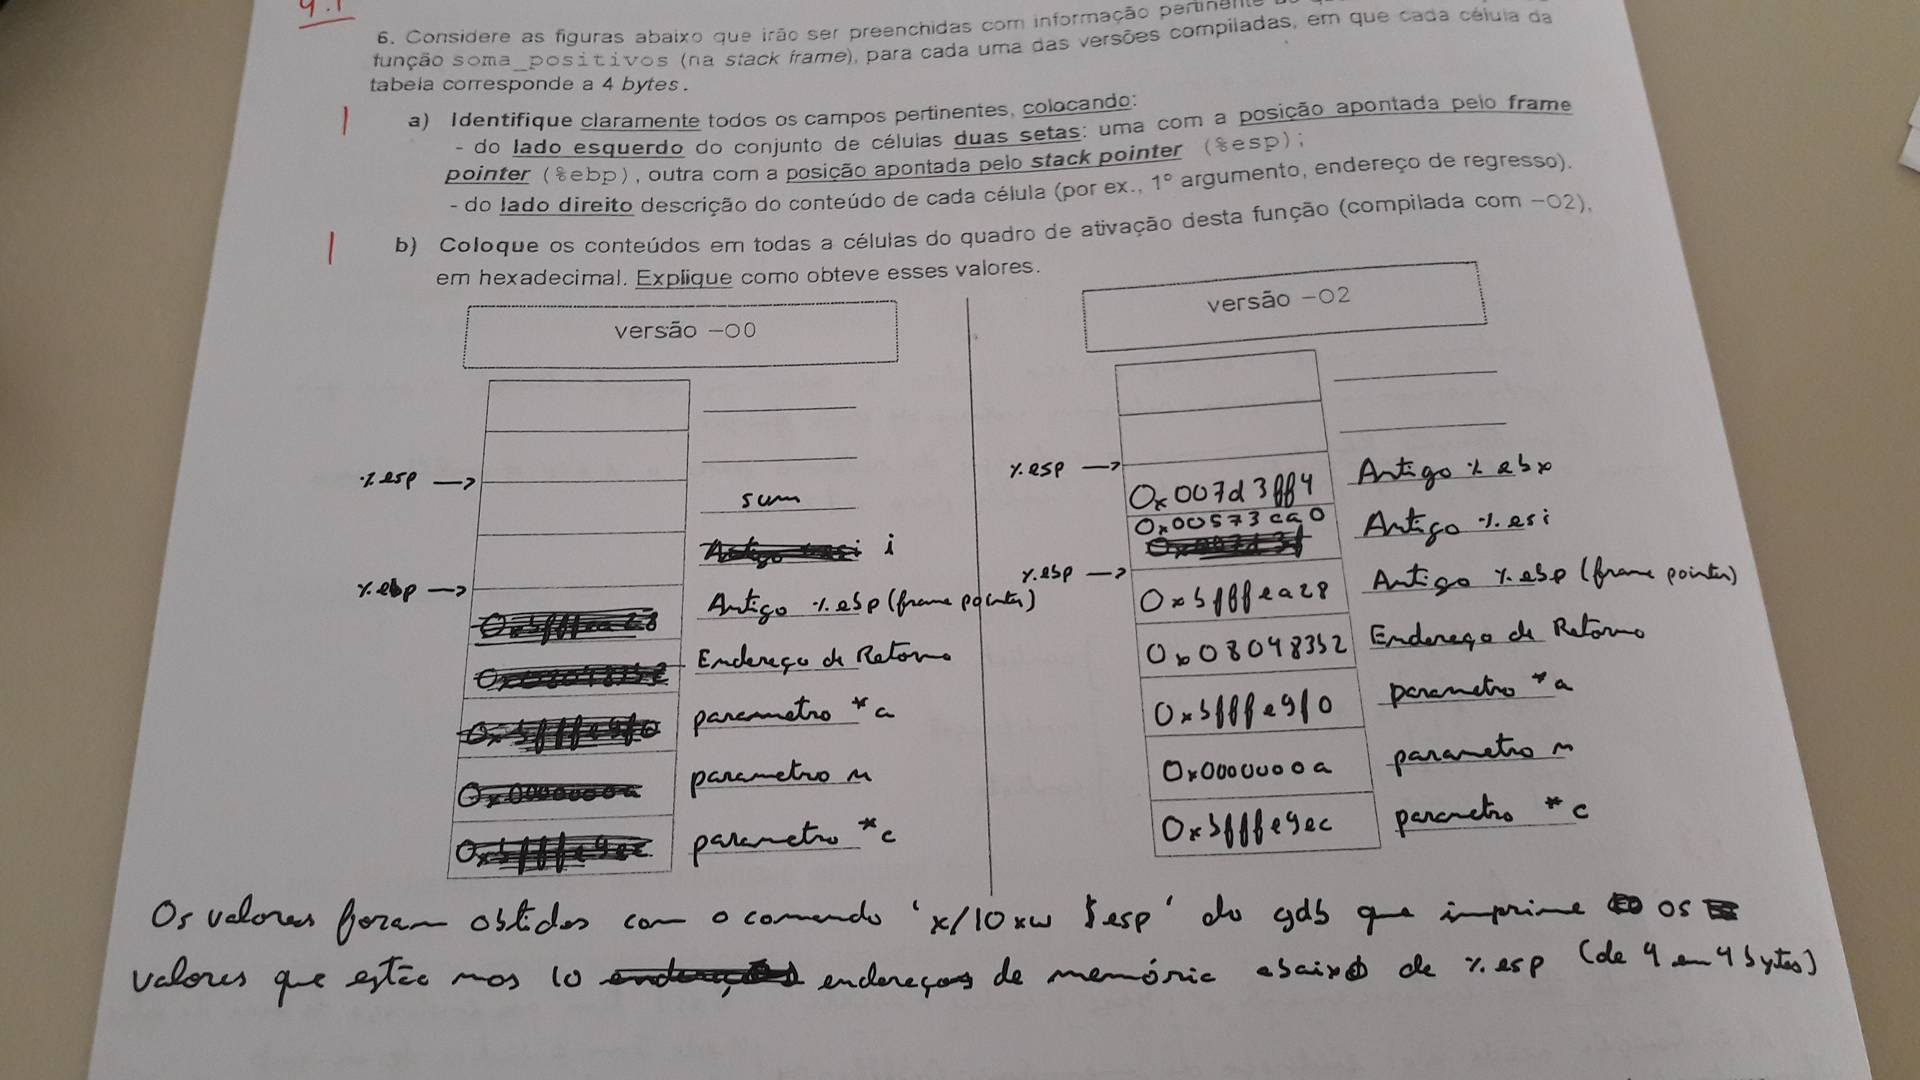 4.1
6. Considere as figuras abaixo que irão ser preenchidas com informação pertinente
função soma_positivos (na stack frame), para cada uma das versões compiladas, em que cada célula da
tabela corresponde a 4 bytes.
a) Identifique claramente todos os campos pertinentes, colocando:
- do lado esquerdo do conjunto de células duas setas: uma com a posição apontada pelo frame
pointer (%ebp), outra com a posição apontada pelo stack pointer (%esp);
- do lado direito descrição do conteúdo de cada célula (por ex., 1º argumento, endereço de regresso).
b) Coloque os conteúdos em todas a células do quadro de ativação desta função (compilada com -O2),
em hexadecimal. Explique como obteve esses valores.
versão -O0
%esp →
sum
i
%ebp →
Antigo %ebp (frame pointer)
Endereço de Retorno
parametro *a
parametro n
parametro *c
versão -O2
%esp →
0x007d3ff4 Antigo %ebx
0x00573ca0 Antigo %esi
%ebp →
0xbfffea28 Antigo %ebp (frame pointer)
0x08048352 Endereço de Retorno
0xbfffe9f0 parametro *a
0x0000000a parametro n
0xbfffe9ec parametro *c
Os valores foram obtidos com o comando 'x/10xw $esp' do gdb que imprime os
valores que estão nos 10 endereços de memória abaixo de %esp (de 4 em 4 bytes)